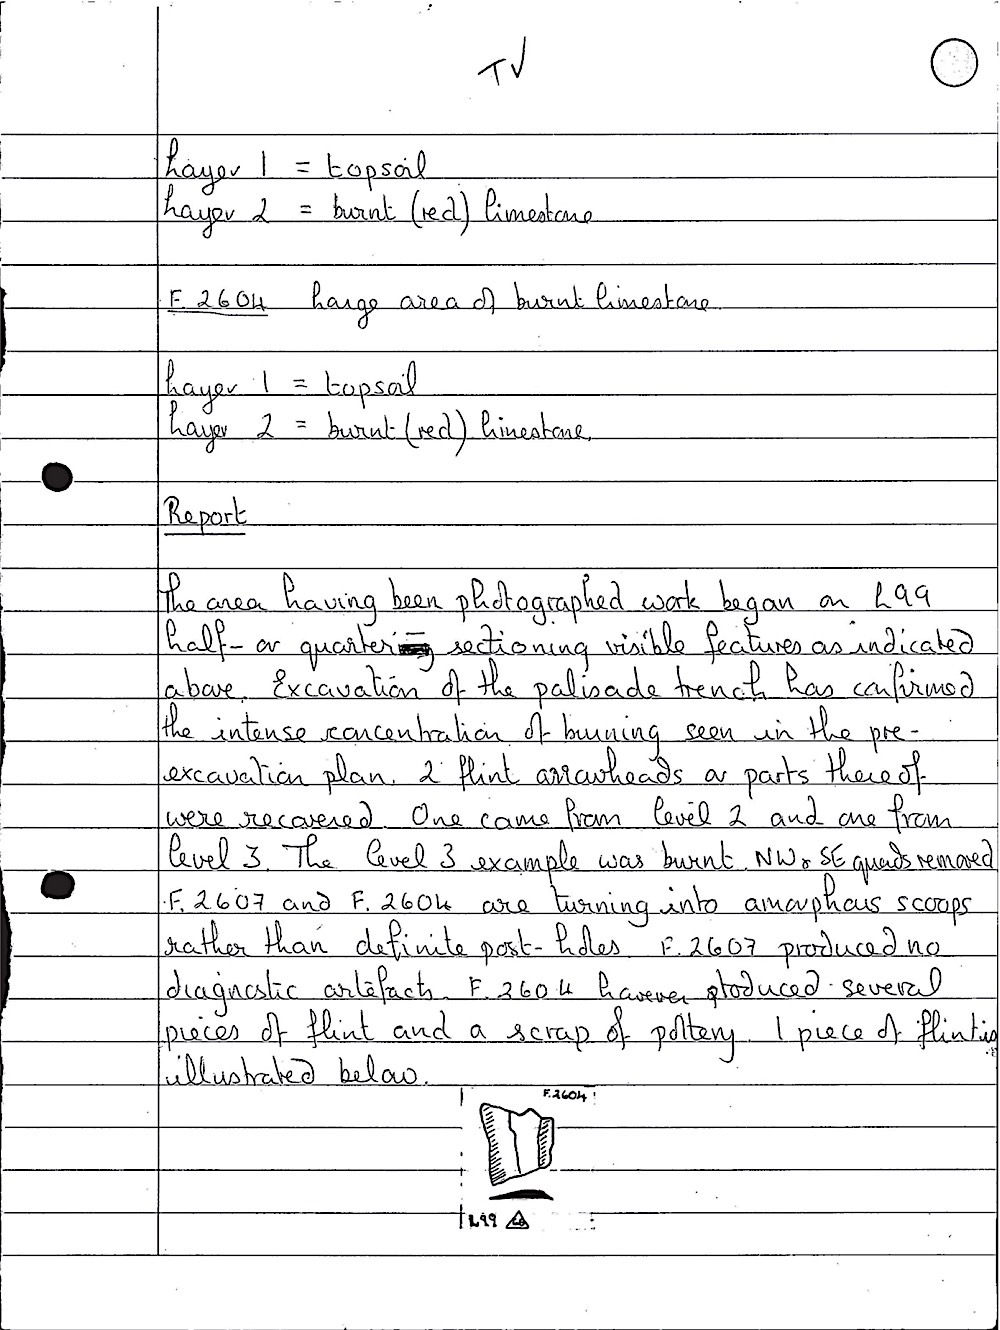 TV
Layer 1 = topsoil
Layer 2 = burnt (red) limestone
F. 2604 Large area of burnt limestone.
Layer 1 = topsoil
Layer 2 = burnt (red) limestone.
Report
The area having been photographed work began on L99
half- or quartering sectioning visible features as indicated
above. Excavation of the palisade trench has confirmed
the intense concentration of burning seen in the pre-
excavation plan. 2 flint arrowheads or parts thereof
were recovered. One came from level 2 and one from
level 3. The level 3 example was burnt. NW & SE quads removed
F. 2607 and F. 2604 are turning into amorphous scoops
rather than definite post-holes. F. 2607 produced no
diagnostic artefacts. F. 2604 however produced several
pieces of flint and a scrap of pottery. 1 piece of flint is
illustrated below.
F. 2604
L99